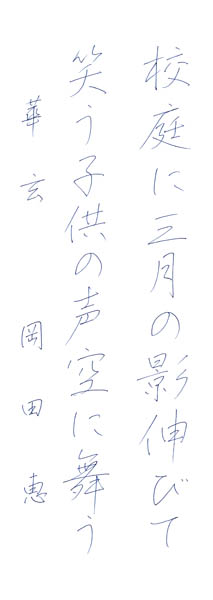 校庭に三月の影伸びて
笑う子供の声空に舞う
華玄 岡田恵